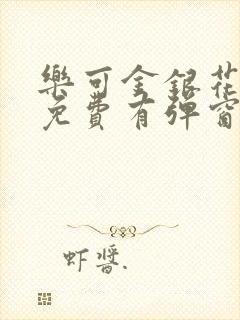 樂可金銀花
免費有彈窗
虾醬.